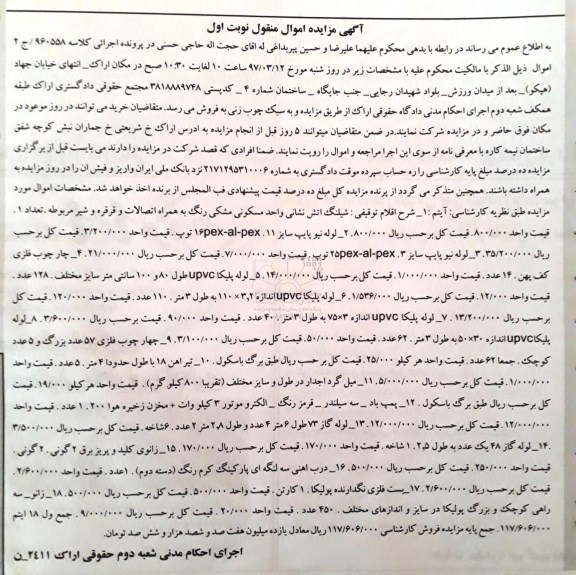 آگهی مزایده اموال منقول نوبت اول
به اطلاع عموم می رساند در رابطه با بدهی محکوم علیهما علیرضا و حسین پیربداغی له اقای حجت اله حاجی حسنی در پرونده اجرائی کلاسه ۹۶۰۵۵۸ / ج ۲
اموال ذیل الذکر با مالکیت محکوم علیه با مشخصات زیر در روز شنبه مورخ ۹۷/۰۳/۱۲ ساعت ۱۰ لغایت ۱۰:۳۰ صبح در مکان اراک_ انتهای خیابان جهاد
(هپکو)_ بعد از میدان ورزش_ بلواد شهیدان رجایی_ جنب جایگاه _ ساختمان شماره ۴ _ کدپستی ۳۸۱۸۸۸۹۷۴۸ مجتمع حقوقی دادگستری اراک طبقه
همکف شعبه دوم اجرای احکام مدنی دادگاه حقوقی اراک از طریق مزایده و به سبک چوب زنی به فروش می رسد. متقاضیان خرید می توانند در روز موعود در
مکان فوق حاضر و در مزایده شرکت نمایند.در ضمن متقاضیان میتوانند ۵ روز قبل از انجام مزایده به ادرس اراک خ شریعتی خ جماران نبش کوچه شفق
ساختمان نیمه کاره با معرفی نامه از سوی این اجرا مراجعه و اموال را رویت نمایند. ضمنا افرادی که قصد شرکت در مزایده را دارند می بایست قبل از برگزاری
مزایده ده درصد مبلغ پایه کارشناسی را به حساب سپرده موقت دادگستری به شماره ۲۱۷۱۲۹۵۳۱۰۰۰۶ نزد بانک ملی ایران واریز و فیش ان را در روز مزایده به
همراه داشته باشند. همچنین متذکر می گردد از برنده مزایده کل مبلغ ده درصد قیمت پیشنهادی فب المجلس از برنده اخذ خواهد شد. مشخصات اموال مورد
مزایده طبق نظریه کارشناسی: آیتم :۱_ شرح اقلام توقیفی : شیلنگ اتش نشانی واحد مسکونی مشکی رنگ به همراه اتصالات و قرقره و شیر مربوطه .تعداد ۱ .
قیمت واحد ۸۰۰/۰۰۰. قیمت کل برحسب ریال ۸۰۰/۰۰۰. ۲_لوله نیو پایپ سایز ۱۱ . ۱۶pex-al-pex توپ . قیمت واحد ۳/۲۰۰/۰۰۰. قیمت کل برحسب
ریال ۳۵/۲۰۰/۰۰۰. ۳_لوله نیو پایپ سایز ۳. ۲۵pex-al-pex توپ . قیمت واحد ۷/۰۰۰/۰۰۰. قیمت کل برحسب ریال ۲۱/۰۰۰/۰۰۰. ۴_چار چوب فلزی
کف پهن . ۱۴ عدد . قیمت واحد ۱/۰۰۰/۰۰۰ . قیمت کل برحسب ریال ۱۴/۰۰۰/۰۰۰ . ۵_لوله پلیکا upvc طول ۸۰ و ۱۰۰ سانتی متر سایز مختلف . ۱۲۸ عدد .
قیمت واحد ۱۲/۰۰۰ . قیمت کل برحسب ریال ۱/۵۳۶/۰۰۰ . ۶_لوله پلیکا upvc اندازه ۳٫۲ × ۱۱۰ به طول ۳ متر . ۱۱۰ عدد . قیمت واحد ۱۲۰/۰۰۰. قیمت کل
برحسب ریال ۱۳/۲۰۰/۰۰۰ . ۷_ لوله پلیکا upvc اندازه ۳×۷۵ به طول ۳ متر . ۴۰ عدد . قیمت واحد ۹۰/۰۰۰. قیمت کل برحسب ریال ۳/۶۰۰/۰۰۰ . ۸_لوله
پلیکا upvc اندازه ۳۰×۵۰ به طول ۳ متر . ۶۲ عدد . قیمت واحد ۵۰/۰۰۰. قیمت کل برحسب ریال ۳/۱۰۰/۰۰۰. ۹_چهار چوب فلزی ۵۷ عدد بزرگ و ۵ عدد
کوچک . جمعا ۶۲ عدد . قیمت واحد هر کیلو ۲۵/۰۰۰. قیمت کل برحسب ریال طبق برگ باسکول . ۱۰_تیر اهن ۱۸ با طول حدودا ۴ متر . ۵ عدد . قیمت واحد
۱/۰۰۰/۰۰۰ . قیمت کل برحسب ریال ۵/۰۰۰/۰۰۰. ۱۱_میل گرد اجدار در طول و سایز مختلف (تقریبا ۸۰۰ کیلو گرم) . قیمت واحد هر کیلو ۱۹/۰۰۰. قیمت
کل برحسب ریال طبق برگ باسکول . ۱۲_ پمپ باد _ سه سیلندر _ قرمز رنگ _ الکترو موتور ۳ کیلو وات + مخزن زخیره هوا ۲۰۰ . ۱عدد . قیمت واحد
۱۲/۰۰۰/۰۰۰. قیمت کل برحسب ریال ۱۲/۰۰۰/۰۰۰. ۱۳_لوله گاز ۷۳ طول ۶ متر ۴ عدد و طول ۲٫۸ متر ۲ عدد . ۶شاخه . قیمت کل برحسب ریال ۳/۵۰۰/۰۰۰
.۱۴_لوله گاز ۴۸ یک عدد به طول ۲٫۵ . ۱ شاخه . قیمت واحد ۱۷۰/۰۰۰ . قیمت کل برحسب ریال ۱۷۰/۰۰۰ . ۱۵_زانوی کلید و پریز برق ۲ گونی . ۲ گونی .
قیمت واحد ۲۵۰/۰۰۰ . قیمت کل برحسب ریال ۵۰۰/۰۰۰ . ۱۶_درب اهنی سه لنگه ای پارکینگ کرم رنگ (دسته دوم) . ۱عدد . قیمت واحد ۲/۶۰۰/۰۰۰ .
قیمت کل برحسب ریال ۲/۶۰۰/۰۰۰ . ۱۷_بست فلزی نگدارنده پولیکا . ۱ کارتن . قیمت واحد ۵۰۰/۰۰۰. قیمت کل برحسب ریال ۵۰۰/۰۰۰. ۱۸_زانو_ سه
راهی کوچک و بزرگ پولیکا در سایز و اندازهای مختلف . ۴۵۰ عدد . قیمت واحد ۲۰/۰۰۰ . قیمت کل برحسب ریال ۹/۰۰۰/۰۰۰ . جمع ول ۱۸ ایتم
۱۱۷/۶۰۶/۰۰۰. جمع پایه مزایده فروش کارشناسی ۱۱۷/۶۰۶/۰۰۰ ریال معادل یازده میلیون هفت صد و شصد هزار و شش صد تومان.
اجرای احکام مدنی شعبه دوم حقوقی اراک ۲۴۱۱_ن